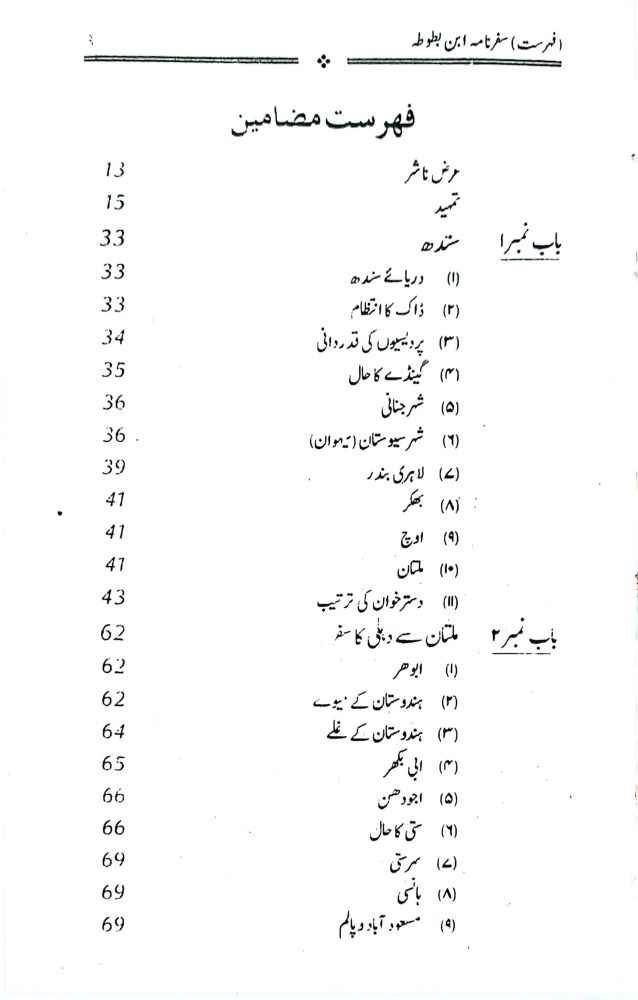 (فہرست) سفرنامہ ابن بطوطہ ۹
فہرست مضامین
عرض ناشر 13
تمہید 15
باب نمبر ۱ سندھ 33
(۱) دریائے سندھ 33
(۲) ڈاک کا انتظام 33
(۳) پردیسیوں کی قدردانی 34
(۴) گینڈے کا حال 35
(۵) شہر جنانی 36
(۶) شہر سیوستان (سہوان) 36
(۷) لاہری بندر 39
(۸) بھکر 41
(۹) اوچ 41
(۱۰) ملتان 41
(۱۱) دسترخوان کی ترتیب 43
باب نمبر ۲ ملتان سے دہلی کا سفر 62
(۱) ابوھر 62
(۲) ہندوستان کے میوے 62
(۳) ہندوستان کے غلے 64
(۴) ابی بکھر 65
(۵) اجودھن 66
(۶) ستی کا حال 66
(۷) سرستی 69
(۸) ہانسی 69
(۹) مسعود آباد و پالم 69